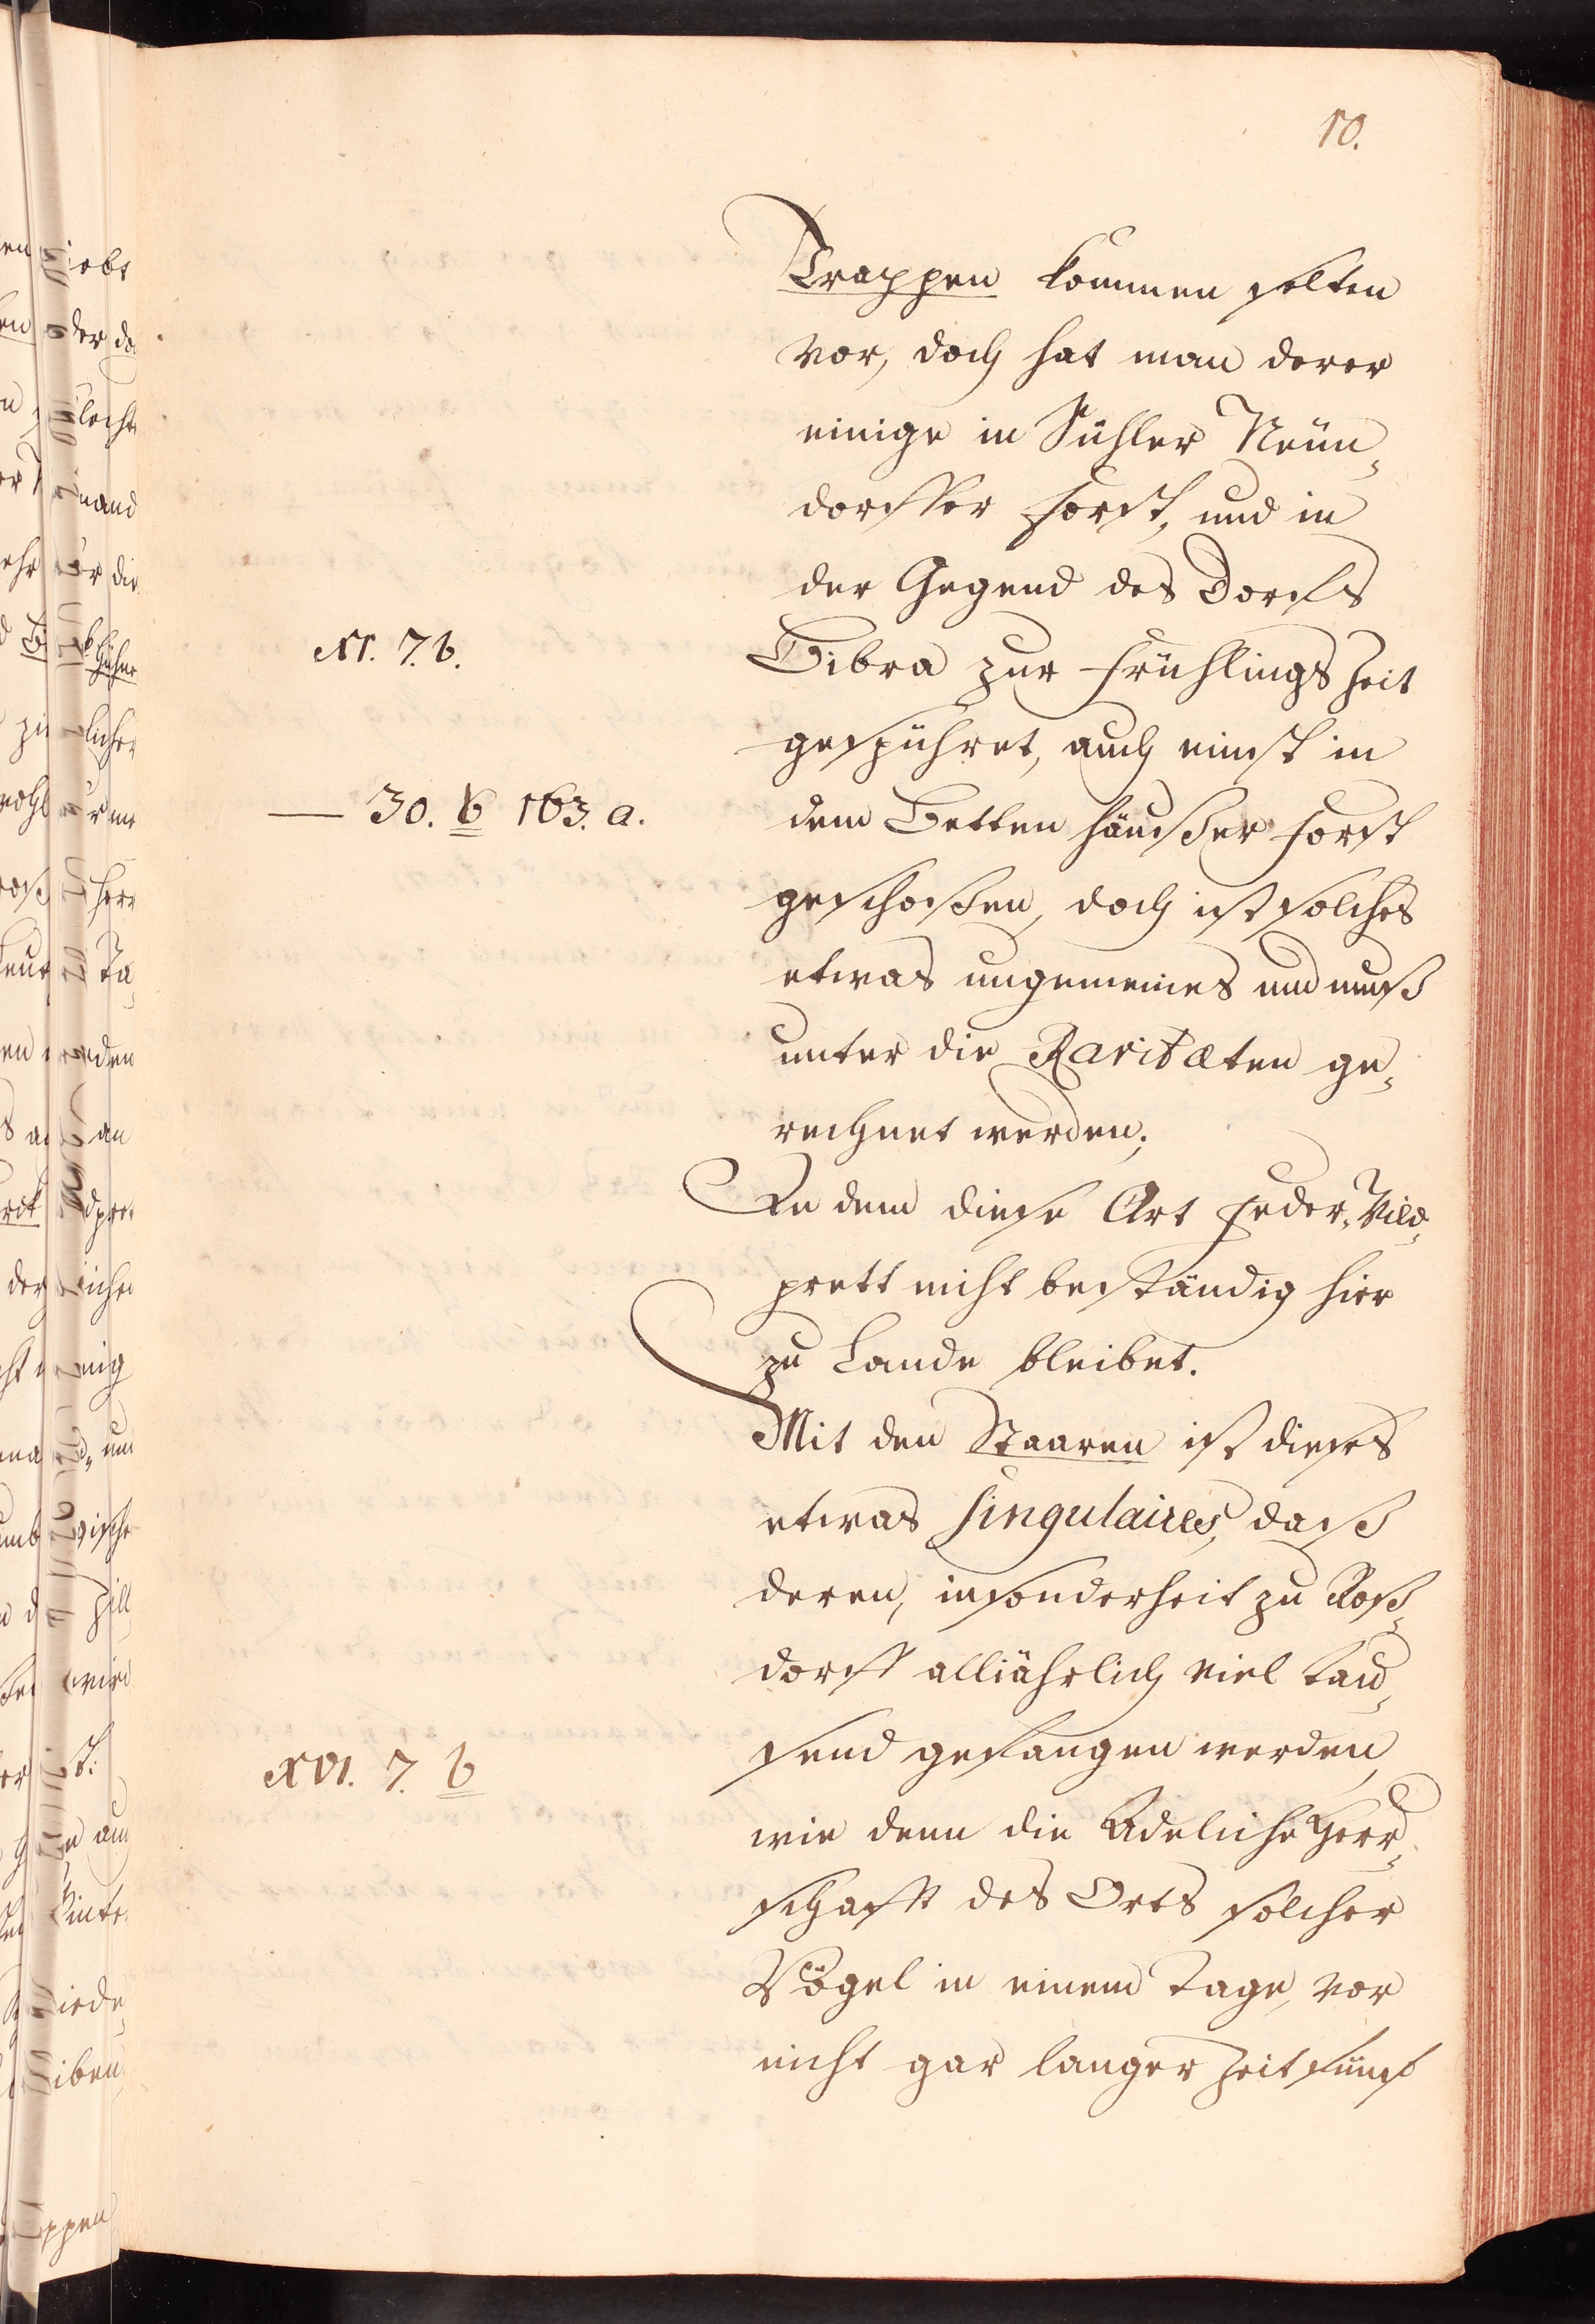 10.
Trappen kommen selten
vor, doch hat man derer
einige in Suhler Neün-
dorffer Forst, und in
der Gegend des Dorffs
XI. 7. b.
Bibra zur Frühlings Zeit
gespühret, auch einst in
— 30. b 163. a.
dem Bettenhäußer Forst
geschoßen, doch ist solches
etwas ungemeines und muß
unter die Raritæten ge-
rechnet werden;
In dem diese Art Feder-Wild-
prett nicht beständig hier
zu Lande bleibet.
Mit den Staaren ist dieses
etwas singulaires, daß
deren, insonderheit zu Roß-
dorff alljährlich viel tau-
send gefangen werden,
XVI. 7. b
wie denn die Adeliche Herr-
schafft des Orts solcher
Vögel in einem Tage, vor
nicht gar langer Zeit fünf